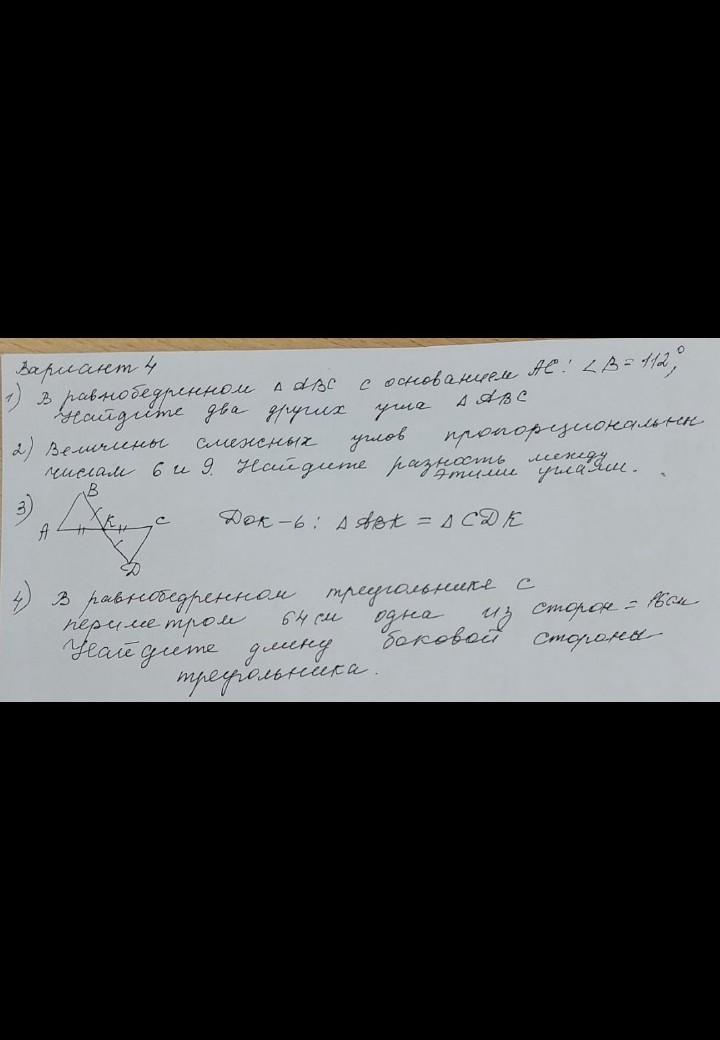 Вариант 4
1) В равнобедренном △ ABC с основанием AC: ∠B = 112°,
Найдите два других угла △ ABC
2) Величины смежных углов пропорциональны
числам 6 и 9. Найдите разность между
этими углами.
3) B
A K C Док-ть: △ ABK = △ CDK
D
4) В равнобедренном треугольнике с
периметром 64 см одна из сторон = 16 см
Найдите длину боковой стороны
треугольника.